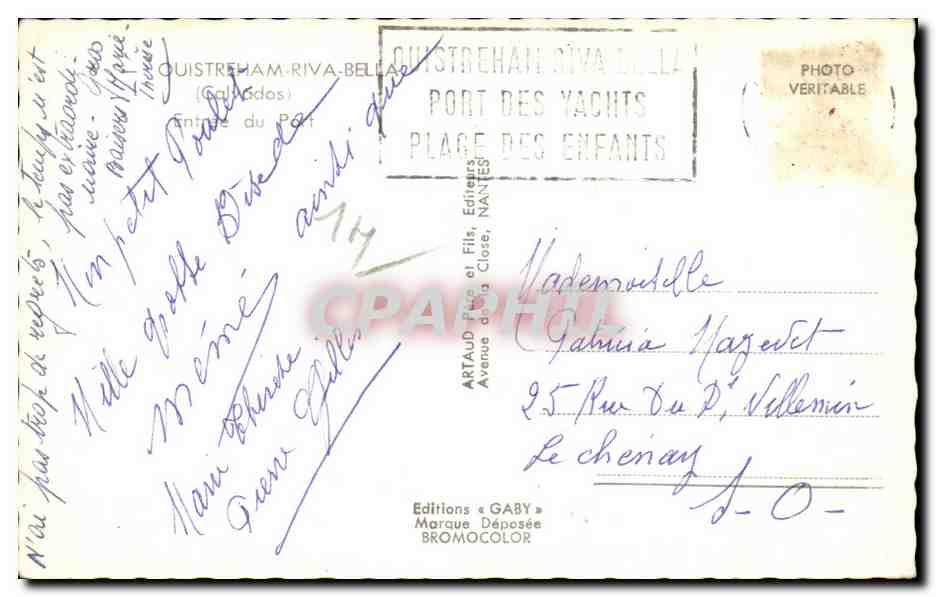 OUISTREHAM-RIVA-BELLA
(Calvados)
Entrée du Port
OUISTREHAM RIVA BELLA
PORT DES YACHTS
PLAGE DES ENFANTS
PHOTO
VERITABLE
Mon petit Poulet
Mille grosses
ainsi que
mémé
Marie Thérèse
Pierre Gilles
N'ai pas trop de regrets, le temps n'est
pas extraordi-
naire - Gros
Baisers Marie-
Thérèse
ARTAUD Père et Fils, Editeurs
Avenue de la Close, NANTES
CPAPHIL
Mademoiselle
Patricia Mazevet
25 Rue Du Dr Villemin
Le Chesnay
S-O-
Editions « GABY »
Marque Déposée
BROMOCOLOR